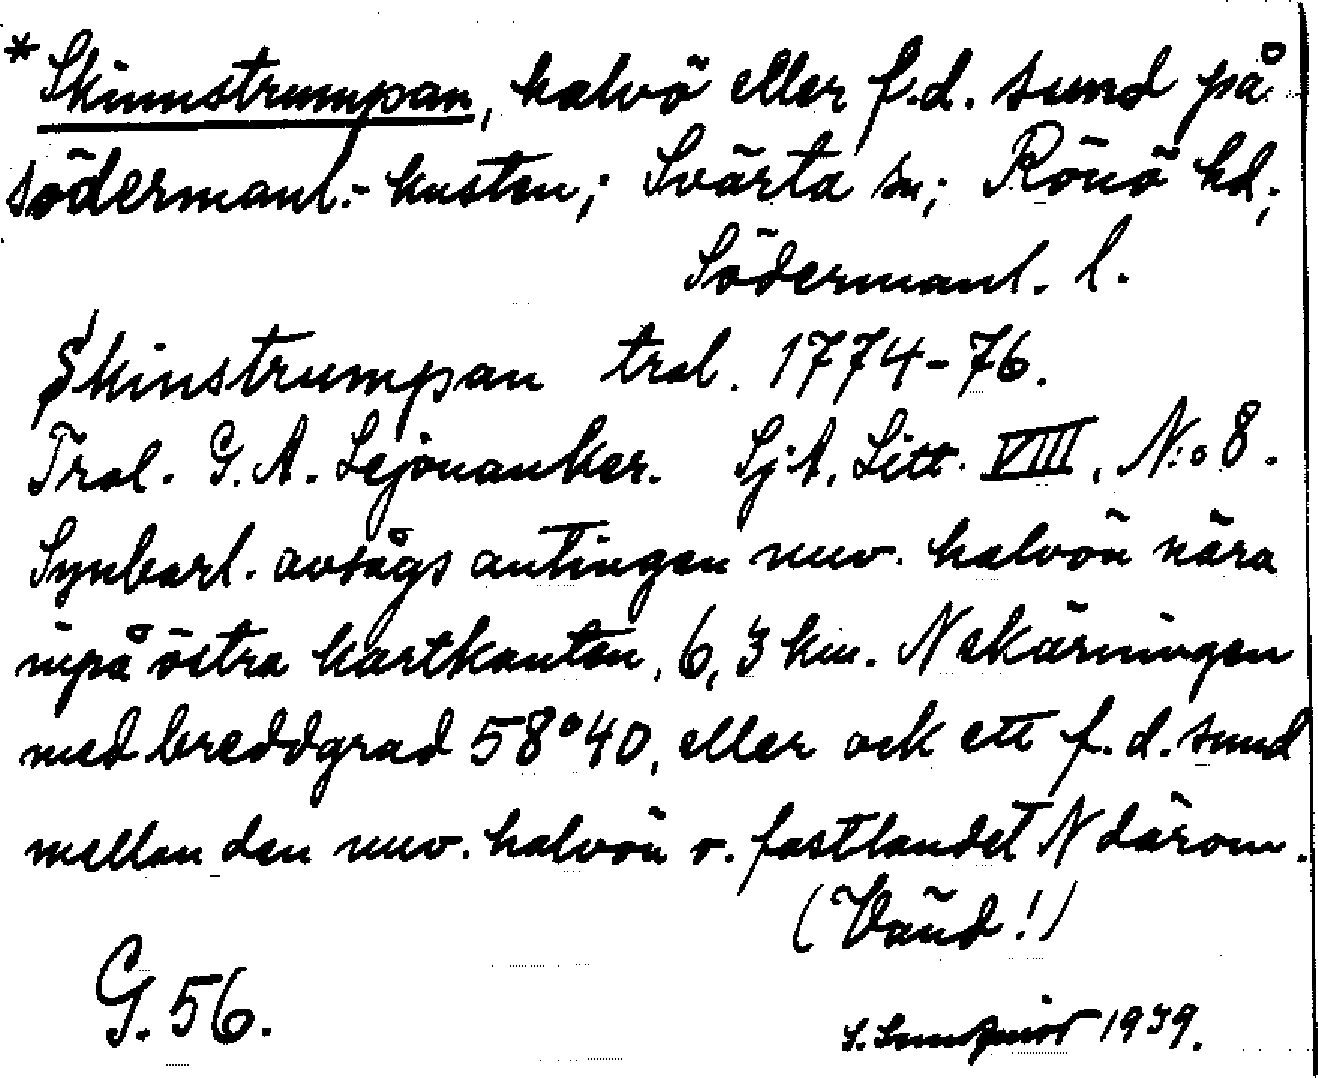 *Skinnstrumpan, halvö eller f.d. sund på
södermanl.-kusten; Svärta sn; Rönö hd;
Södermanl. l.
Skinstrumpan trol. 1774-76.
Trol. G. A. Lejonanker. Sj.A. Litt. VIII, N:o 8.
Synbarl. avsågs antingen nuv. halvön nära
inpå östra kartkanten, 6,3 km. N skärningen
med breddgrad 58°40, eller ock ett f.d. sund
mellan den nuv. halvön o. fastlandet N därom.
(Vänd!)
G. 56.
1939.